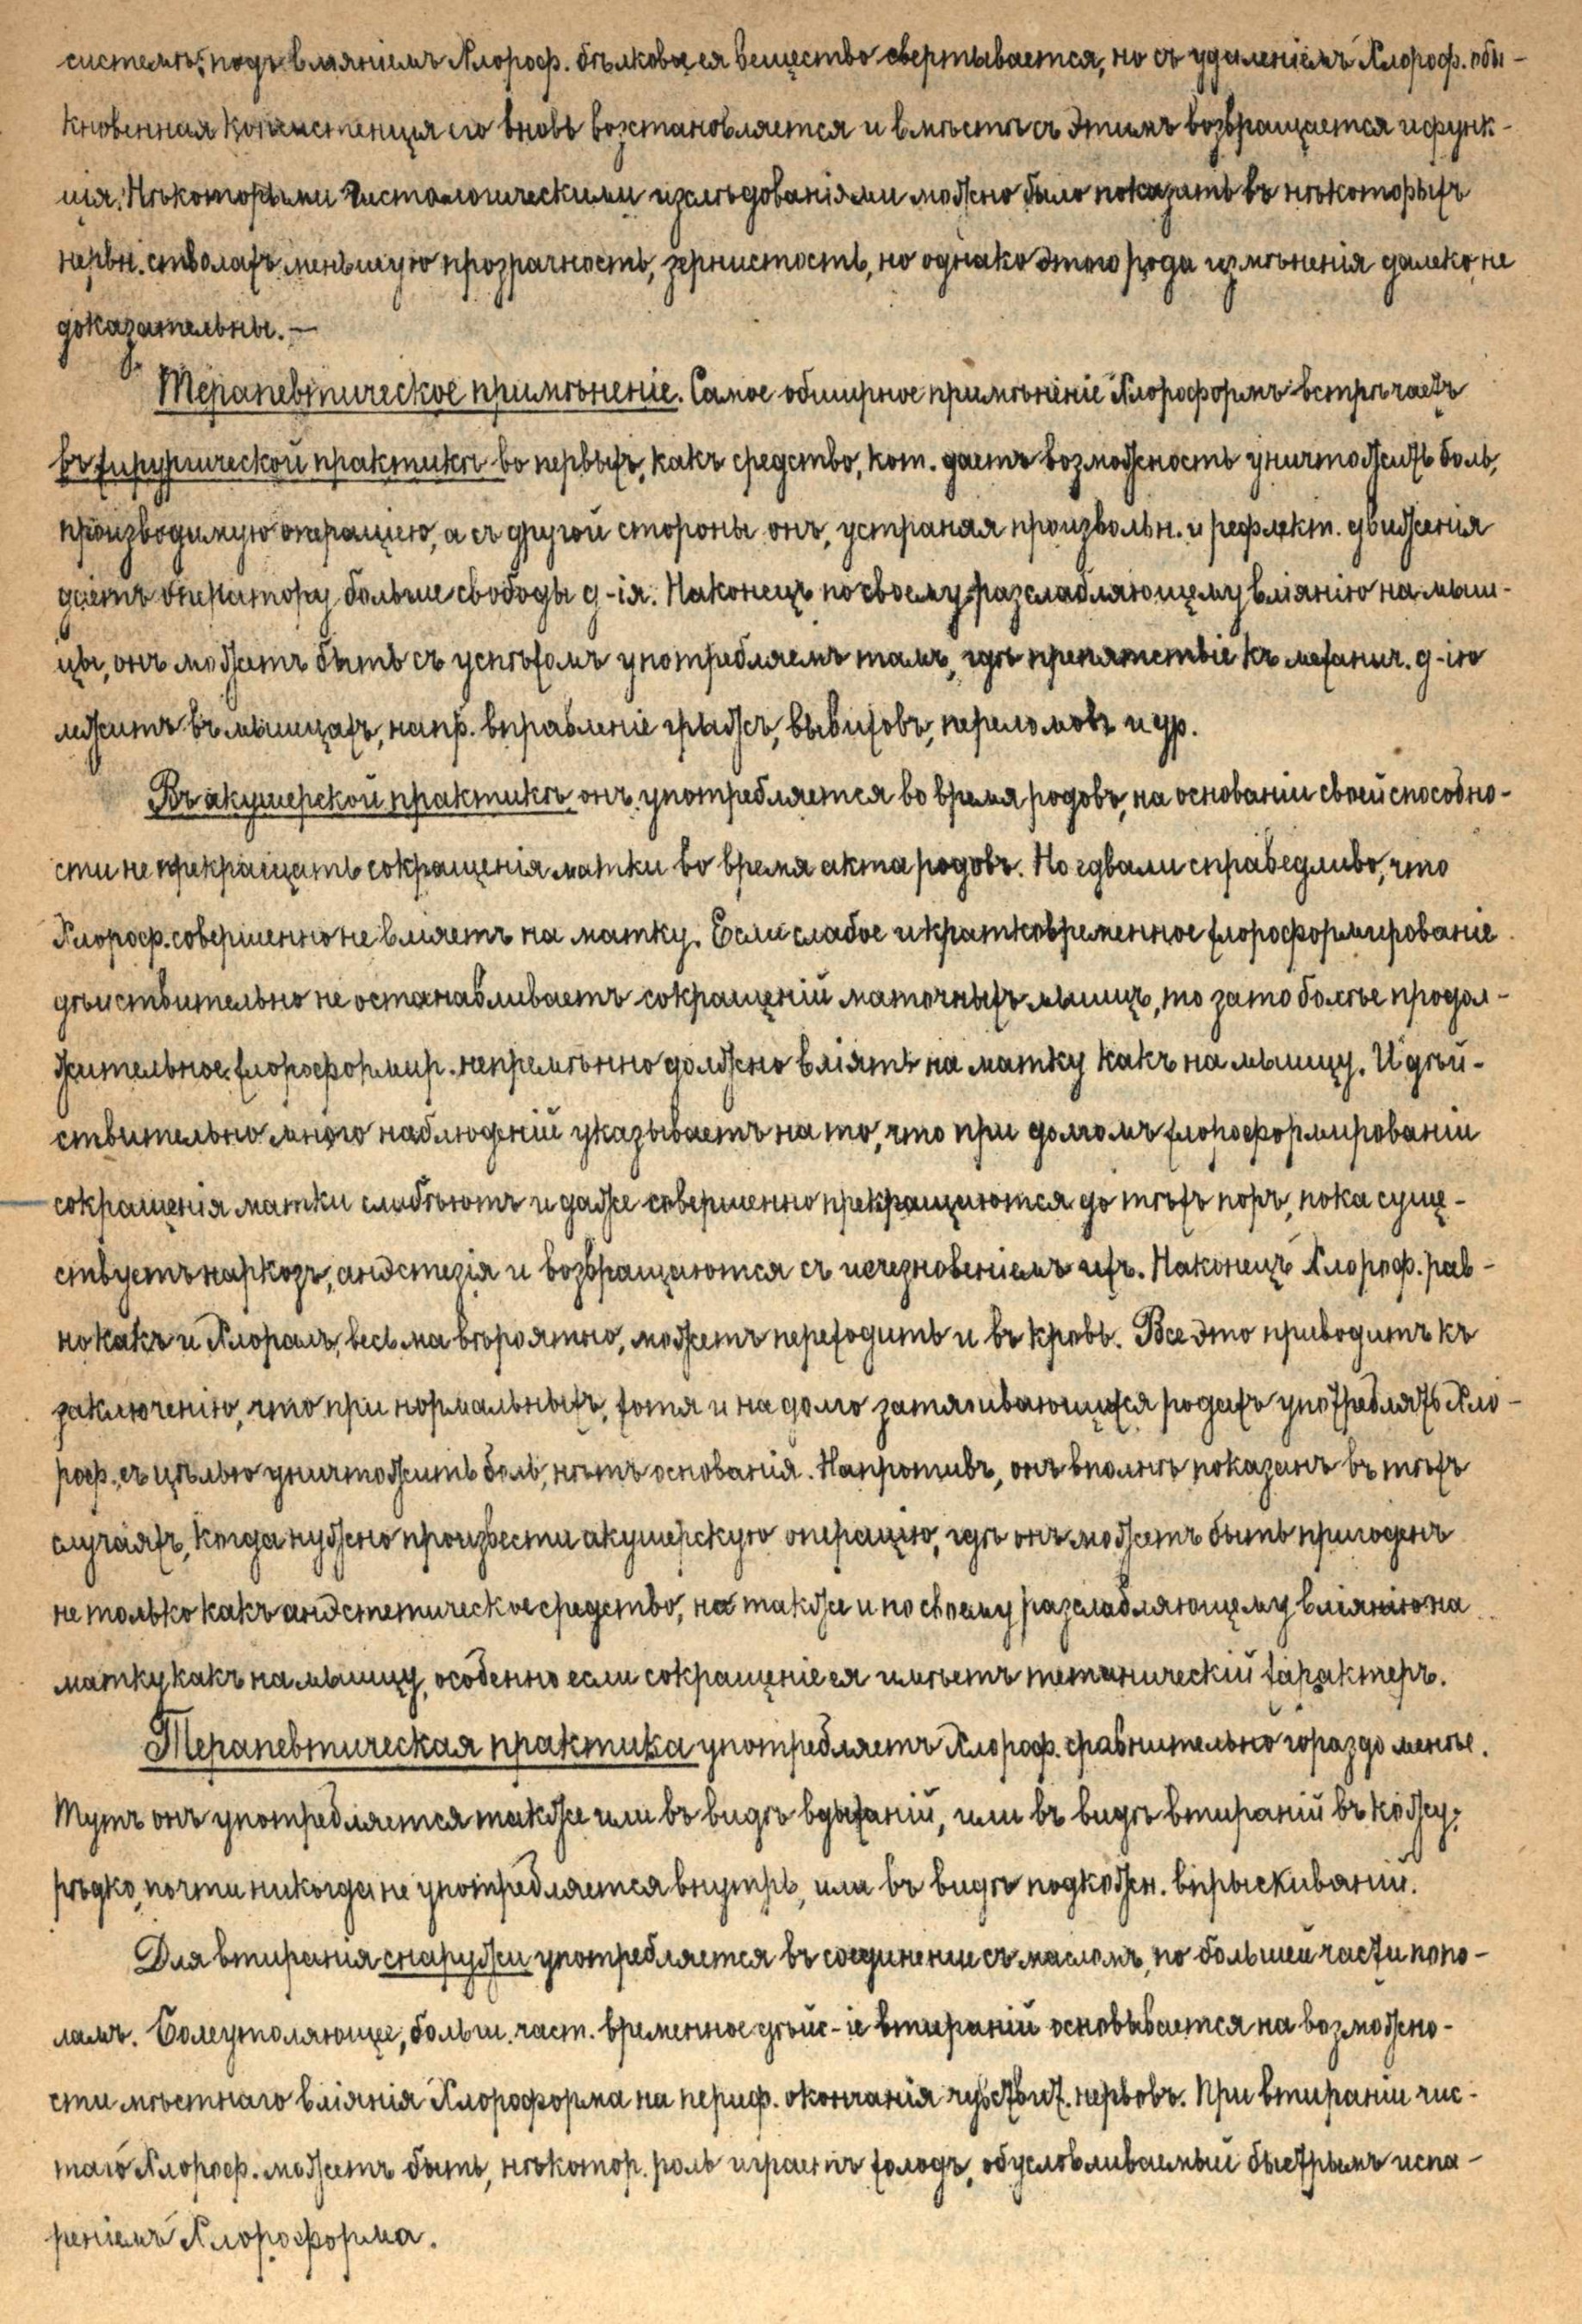 системѣ; подъ вліяніемъ Хлороф. бѣлковое ея вещество свертывается, но съ удаленіемъ Хлороф. обы-
кновенная консистенція его вновь возстановляется и вмѣстѣ съ этимъ возвращается и функ-
ція. Нѣкоторыми Гистологическими изслѣдованіями можно было показать въ нѣкоторыхъ
нервн. стволахъ меньшую прозрачность, зернистость, но однако этого рода измѣненія далеко не
доказательны. —
Терапевтическое примѣненіе. Самое обширное примѣненіе Хлороформъ встрѣчаетъ
въ хирургической практикѣ во первыхъ, какъ средство, кот. даетъ возможность уничтожить боль,
производимую операціею, а съ другой стороны онъ, устраняя произвольн. и рефлект. движенія
даетъ оператору больше свободы д-ія. Наконецъ по своему разслабляющему вліянію на мыш-
цы, онъ можетъ быть съ успѣхомъ употребляемъ тамъ, гдѣ препятствіе къ механич. д-ію
лежитъ въ мышцахъ, напр. вправленіе грыжъ, вывиховъ, переломовъ и др.
Въ акушерской практикѣ онъ употребляется во время родовъ, на основаніи своей способно-
сти не прекращать сокращенія матки во время акта родовъ. Но едвали справедливо, что
Хлороф. совершенно не вліяетъ на матку. Если слабое и кратковременное хлороформированіе
дѣйствительно не останавливаетъ сокращеній маточныхъ мышцъ, то зато болѣе продол-
жительное хлороформир. непремѣнно должно вліять на матку какъ на мышцу. И дѣй-
ствительно много наблюденій указываетъ на то, что при долгомъ хлороформированіи
сокращенія матки слабѣютъ и даже совершенно прекращаются до тѣхъ поръ, пока суще-
ствуетъ наркозъ, анэстезія и возвращаются съ исчезновеніемъ ихъ. Наконецъ Хлороф. рав-
но какъ и Хлоралъ, весьма вѣроятно, можетъ переходить и въ кровь. Все это приводитъ къ
заключенію, что при нормальныхъ, хотя и на долго затягивающихся родахъ употреблять Хло-
роф. съ цѣлью уничтожить боль, нѣтъ основанія. Напротивъ, онъ вполнѣ показанъ въ тѣхъ
случаяхъ, когда нужно произвести акушерскую операцію, гдѣ онъ можетъ быть пригоденъ
не только какъ анэстетическое средство, но также и по своему разслабляющему вліянію на
матку какъ на мышцу, особенно если сокращеніе ея имѣетъ тетаническій характеръ.
Терапевтическая практика употребляетъ Хлороф. сравнительно гораздо менѣе.
Тутъ онъ употребляется также или въ видѣ вдыханій, или въ видѣ втираній въ кожу;
рѣдко, почти никогда не употребляется внутрь, или въ видѣ подкожн. впрыскиваній.
Для втиранія снаружи употребляется въ соединеніе съ масломъ, по большей части попо-
ламъ. Болеутоляющее, больш. част. временное дѣйс-іе втираній основывается на возможно-
сти мѣстнаго вліянія Хлороформа на периф. окончанія чувствит. нервовъ. При втираніи чис-
таго Хлороф. можетъ быть, нѣкотор. роль играетъ холодъ, обусловливаемый быстрымъ испа-
реніемъ Хлороформа.